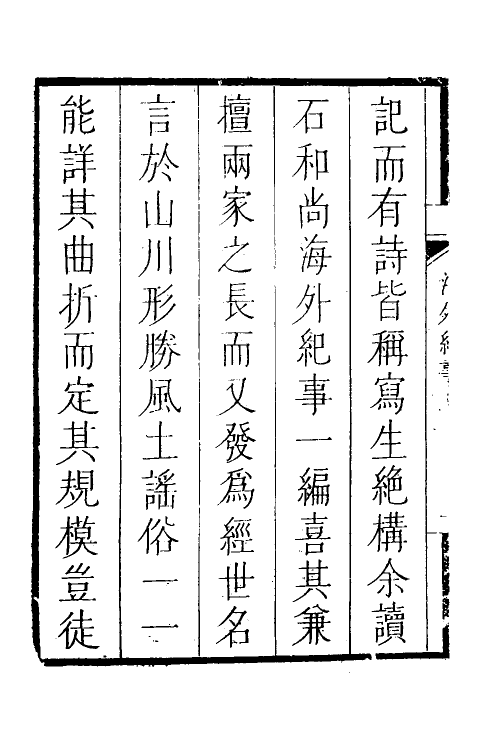 記而有詩皆稱寫生絶構余讀
石和尚海外紀事一編喜其兼
擅兩家之長而又發爲經世名
言於山川形勝風土謠俗一一
能詳其曲折而定其規模豈徒
海外紀事